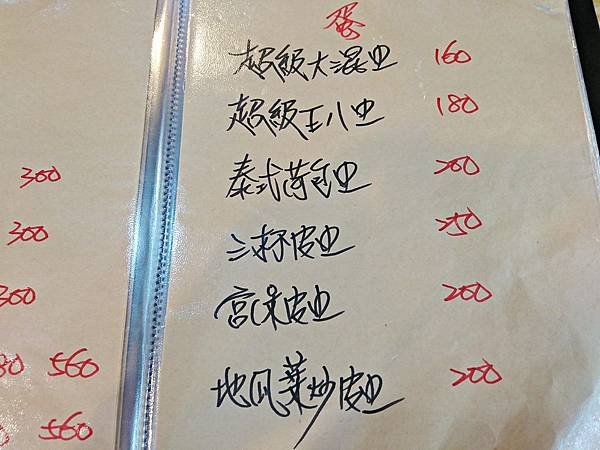 300
300
300
80 560
560
蛋
超級大混旦 160
超級王八旦 180
泰式荷包旦 200
三杯皮旦 250
宮保皮旦 200
地瓜葉炒皮旦 200